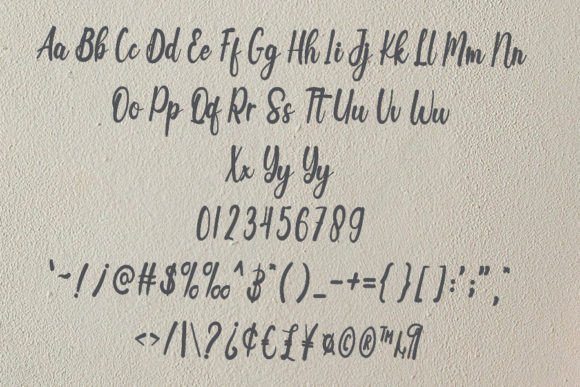 Aa Bb Cc Dd Ee Ff Gg Hh Ii Jj Kk Ll Mm Nn
Oo Pp Qq Rr Ss Tt Uu Vv Ww
Xx Yy Yy
0123456789
`~!¡@#$%‰^₿*()_-+={}[]:';",*
<>/|\?¿¢€£¥¤©®™